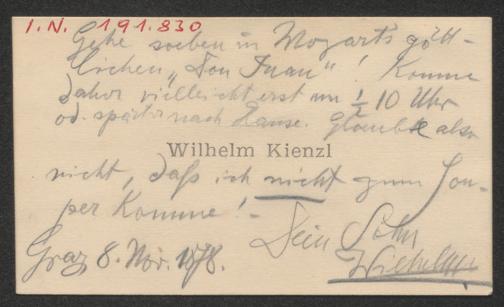 I.N. 191.830
Gehe soeben in Mozarts gött-
lichen „Don Juan“! Komme
daher vielleicht erst um ½ 10 Uhr
od. später nach Hause. Glaube also
Wilhelm Kienzl
nicht, daß ich nicht zum Sou-
per komme! -
Dein Sohn
Wilhelm
Graz 8. Nov. 1878.